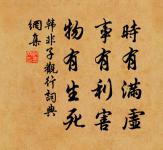 時有滿虛
事有利害
物有生死
韓非子觀行詞典
網集